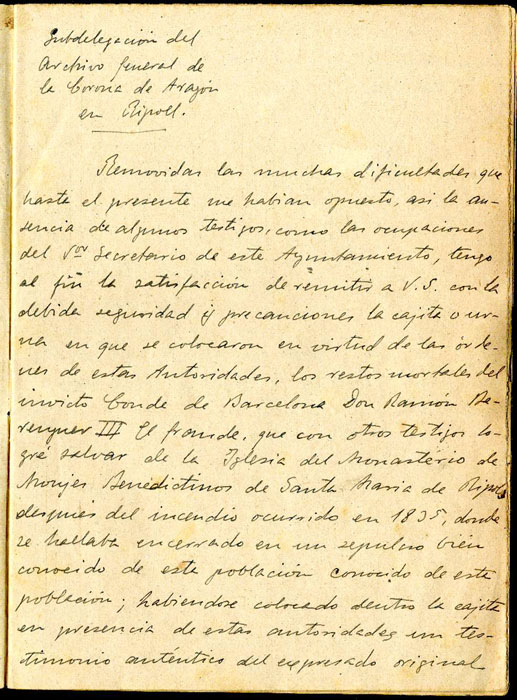 Subdelegación del
Archivo General de
la Corona de Aragón
en Ripoll.
Removidas las muchas dificultades que
hasta el presente me habian opuesto, asi la au-
sencia de algunos testigos, como las ocupaciones
del Sor Secretario de este Ayuntamiento, tengo
al fin la satisfacción de remitir a V.S. con la
debida seguridad y precauciones la cajita o ur-
na en que se colocaron en virtud de las órde-
nes de estas Autoridades, los restos mortales del
invicto Conde de Barcelona Don Ramón Be-
renguer III El Grande, que con otros testigos lo-
gré salvar de la Iglesia del Monasterio de
Monjes Benedictinos de Santa Maria de Ripoll
después del incendio ocurrido en 1835, donde
se hallaba encerrado en un sepulcro bién
conocido de esta población conocido de esta
población; habiendose colocado dentro la cajita
en presencia de estas autoridades un tes-
timonio auténtico del expresado original